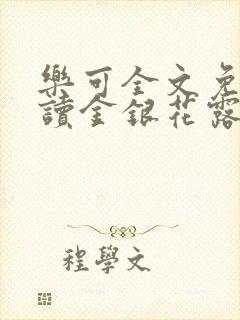 樂可全文免
讀金銀花露
程學文